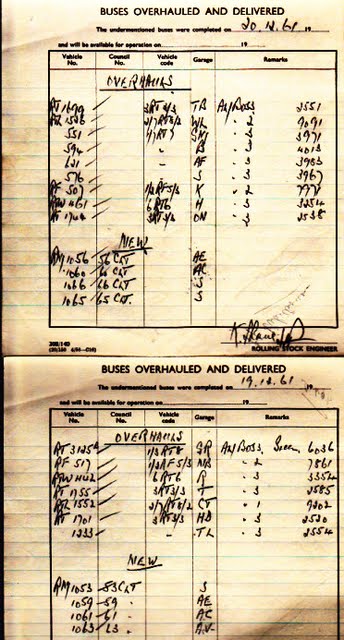 BUSES OVERHAULED AND DELIVERED
The undermentioned buses were completed on 20.12.61 19
and will be available for operation on 19
Vehicle No. Council No. Vehicle code Garage Remarks
OVERHAULS
RT 1699 3RT3/3 TB A4/BOSS 2551
RTL 1526 2/7RT8/2 WL " 2 9091
551 4/7RT7 " 3 3971
594 " B " 3 4013
621 " AF " 3 3903
576 S " 3 3967
RF 507 1/2RF5/3 K " 2
RTW 461 6RT6 H " 3 3254
RT 1744 3RT3/2 ON " 3 2538
NEW
RM 1056 56 CLT AE
1060 60 CLT AC
1066 66 CLT S
1065 65 CLT. S
ROLLING STOCK ENGINEER
BUSES OVERHAULED AND DELIVERED
The undermentioned buses were completed on 19.12.61 19
and will be available for operation on 19
Vehicle No. Council No. Vehicle code Garage Remarks
OVERHAULS
RT 3125 1/3RT8 GR A4/BOSS. 6036
RF 517 1/2RF5/3 " 2 7861
RTW 442 6RT6 R " 3 3354
RT 1755 3RT3/3 T " 3 2585
RTL 1552 2/7RT8/2 CT " 1 9202
RT 1701 3RT3/3 HD " 3 2520
1233 " TL " 3 2554
NEW
RM 1053 53 CLT S
1059 59 " AE
1061 61 " AC
1063 63 " AV